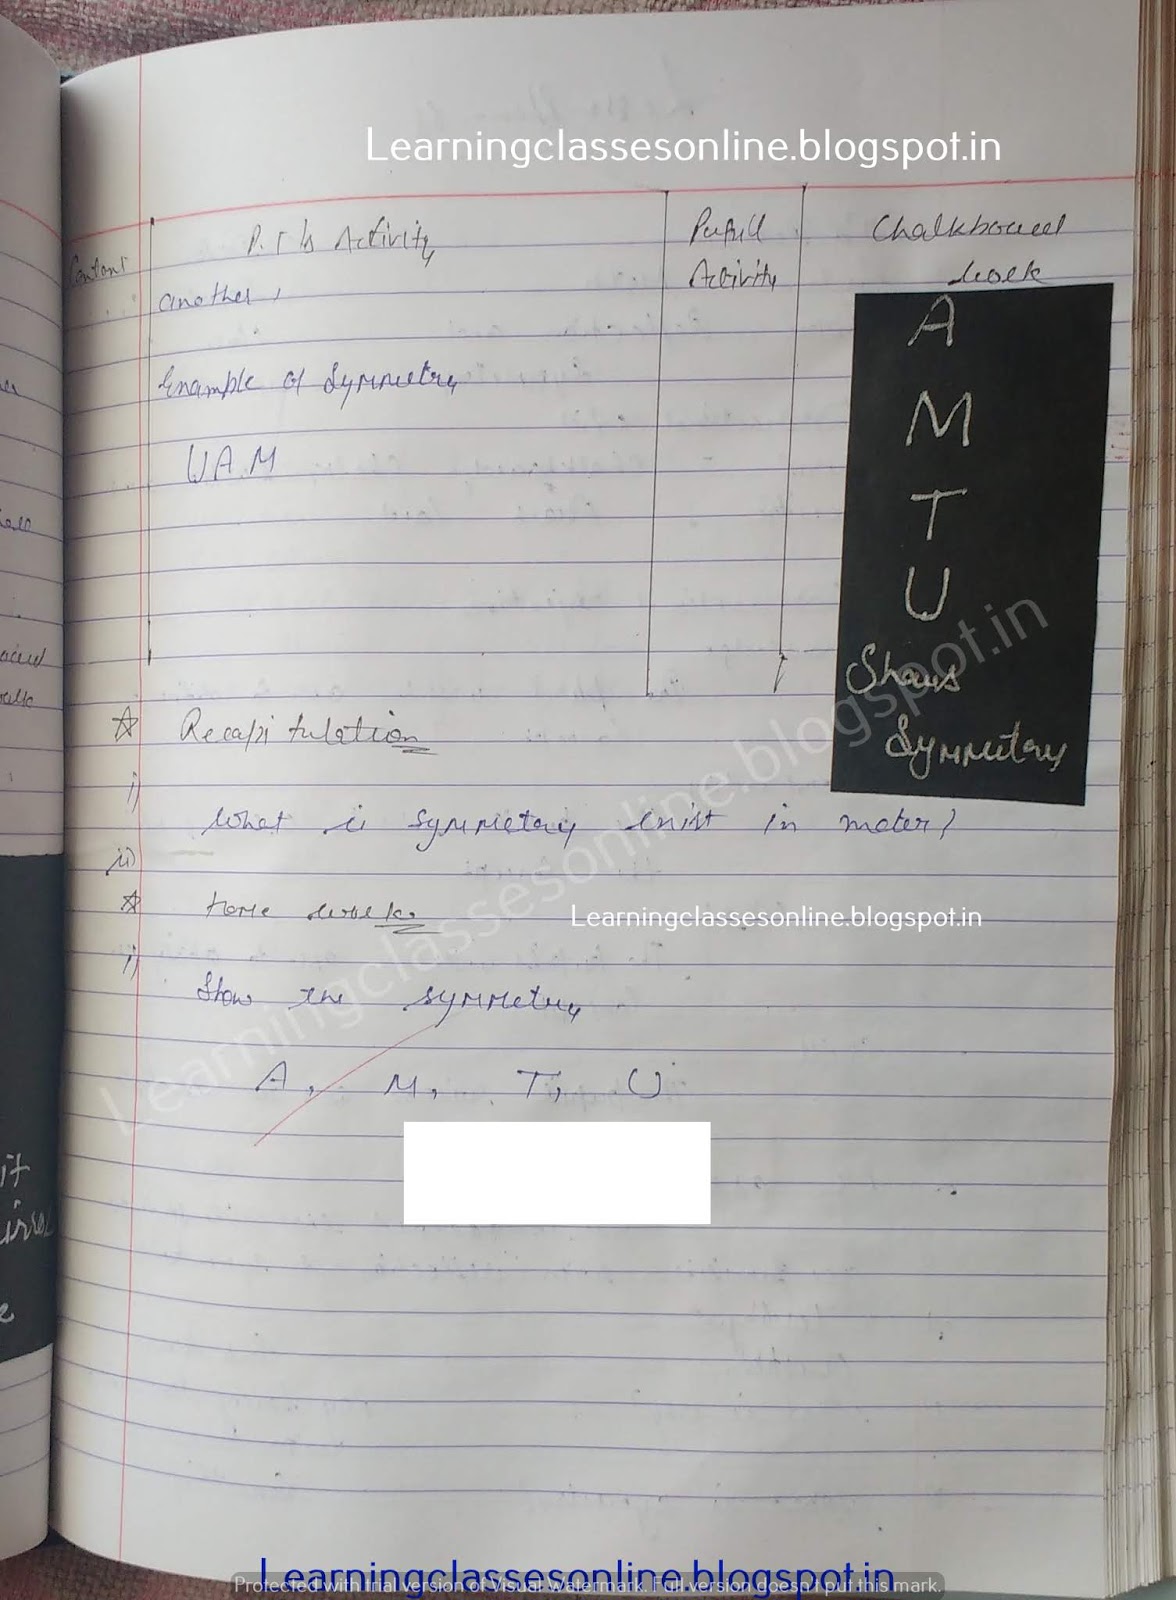 Learningclassesonline.blogspot.in
Contant
P.T's Activity
Pupill
Activity
Chalkboard
work
another,
Example of Symmetry
U A M
A
M
T
U
Shows
Symmetry
☆ Recapitulation
i)
What is symmetry exist in
ii)
☆ Home work
Learningclassesonline.blogspot.in
i)
Show the symmetry
A, M, T, U
Learningclassesonline.blogspot.in
it
Learningclassesonline.blogspot.in
Protected with trial version of Visual Watermark. Full version doesn't put this mark.